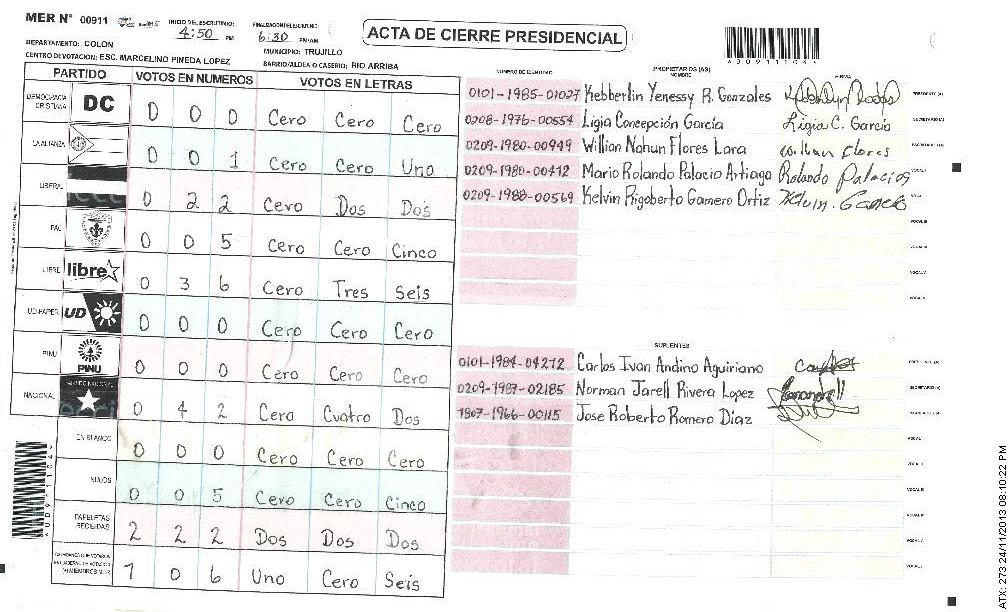 MER N° 00911
INICIO DEL ESCRUTINIO: 4:50 PM
FINALIZACION DEL ESCRUTINIO: 6:30 PM/AM
ACTA DE CIERRE PRESIDENCIAL
DEPARTAMENTO: COLON
MUNICIPIO: TRUJILLO
CENTRO DE VOTACION: ESC. MARCELINO PINEDA LOPEZ
BARRIO/ALDEA O CASERIO: RIO ARRIBA
A00911104
PARTIDO VOTOS EN NUMEROS VOTOS EN LETRAS
DEMOCRACIA CRISTIANA DC 0 0 0 Cero Cero Cero
LA ALIANZA 0 0 1 Cero Cero Uno
LIBERAL 0 2 2 Cero Dos Dos
PAC 0 0 5 Cero Cero Cinco
LIBRE libre 0 3 6 Cero Tres Seis
UD-FAPER UD 0 0 0 Cero Cero Cero
PINU PINU 0 0 0 Cero Cero Cero
NACIONAL PARTIDO NACIONAL 0 4 2 Cero Cuatro Dos
EN BLANCO 0 0 0 Cero Cero Cero
NULOS 0 0 5 Cero Cero Cinco
PAPELETAS RECIBIDAS 2 2 2 Dos Dos Dos
1 0 6 Uno Cero Seis
NUMERO DE IDENTIDAD PROPIETARIOS (AS) NOMBRE FIRMA
0101-1985-01027 Kebberlin Yenessy R. Gonzales PRESIDENTE (A)
0208-1976-00554 Ligia Concepción García Ligia C. García SECRETARIO (A)
0209-1980-00949 Willian Nahun Flores Lara Willian Flores
0209-1980-00412 Mario Rolando Palacio Artiaga Rolando Palacios VOCAL I
0209-1988-00569 Kelvin Rigoberto Gamero Ortiz Kelvin. Gamero
VOCAL III
VOCAL IV
VOCAL V
SUPLENTES
0101-1984-04212 Carlos Ivan Andino Aguiriano PRESIDENTE (A)
0209-1987-02185 Norman Jarell Rivera Lopez SECRETARIO (A)
1807-1966-00115 Jose Roberto Romero Diaz
VOCAL I
VOCAL II
VOCAL III
VOCAL IV
VOCAL V
A00911104
ATX: 273 24/11/2013 08:10:22 PM